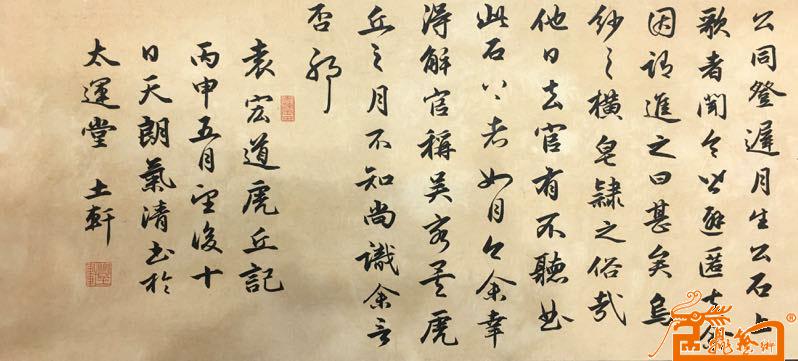 公同登遲月生公石上
歌者聞令皆避匿去余
因謂進之曰甚矣烏
紗之橫皂隸之俗哉
他日去官有不聽曲
此石上者如月今余幸
得解官稱吳客矣虎
丘之月不知尚識余言
否耶
袁宏道虎丘記
丙申五月望後十
日天朗氣清書於
太運堂 土軒